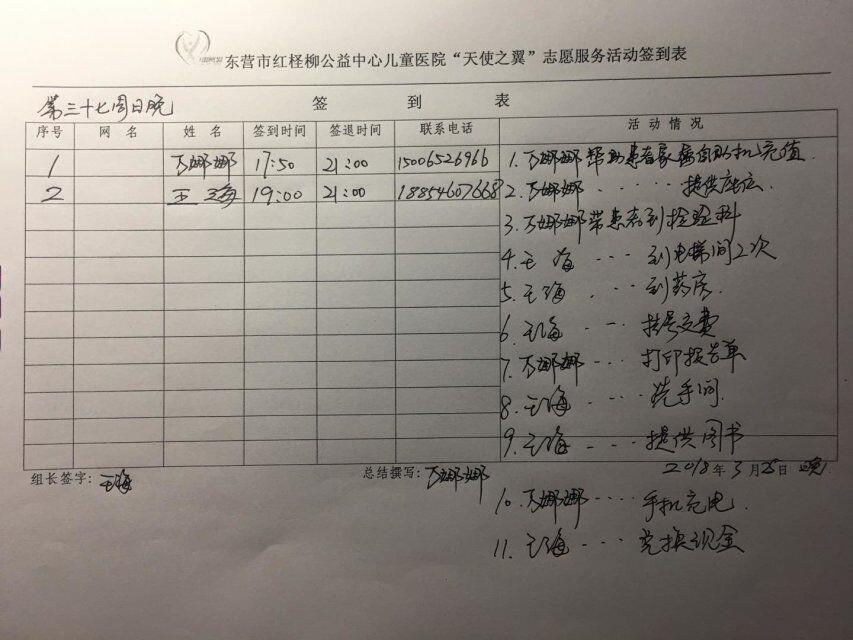 东营市红柽柳公益中心儿童医院“天使之翼”志愿服务活动签到表
第三十七周日晚
签 到 表
序号 网 名 姓 名 签到时间 签退时间 联系电话 活动情况
1 万娜娜 17:50 21:00 15006526966
2 王海 19:00 21:00 18854607668
1. 万娜娜帮助患者家属自助机充值.
2. 万娜娜 ····· 提供座位.
3. 万娜娜带患者到检验科
4. 王海 ··· 到电梯间2次
5. 王海 ··· 到药房.
6. 王海 ··· 挂号交费
7. 万娜娜 ··· 打印报告单
8. 王海 ···· 洗手间.
9. 王海 ··· 提供图书
组长签字: 王海 总结撰写: 万娜娜 2018年3月25日 晚
10. 万娜娜 ···· 手机充电.
11. 王海 ··· 兑换现金